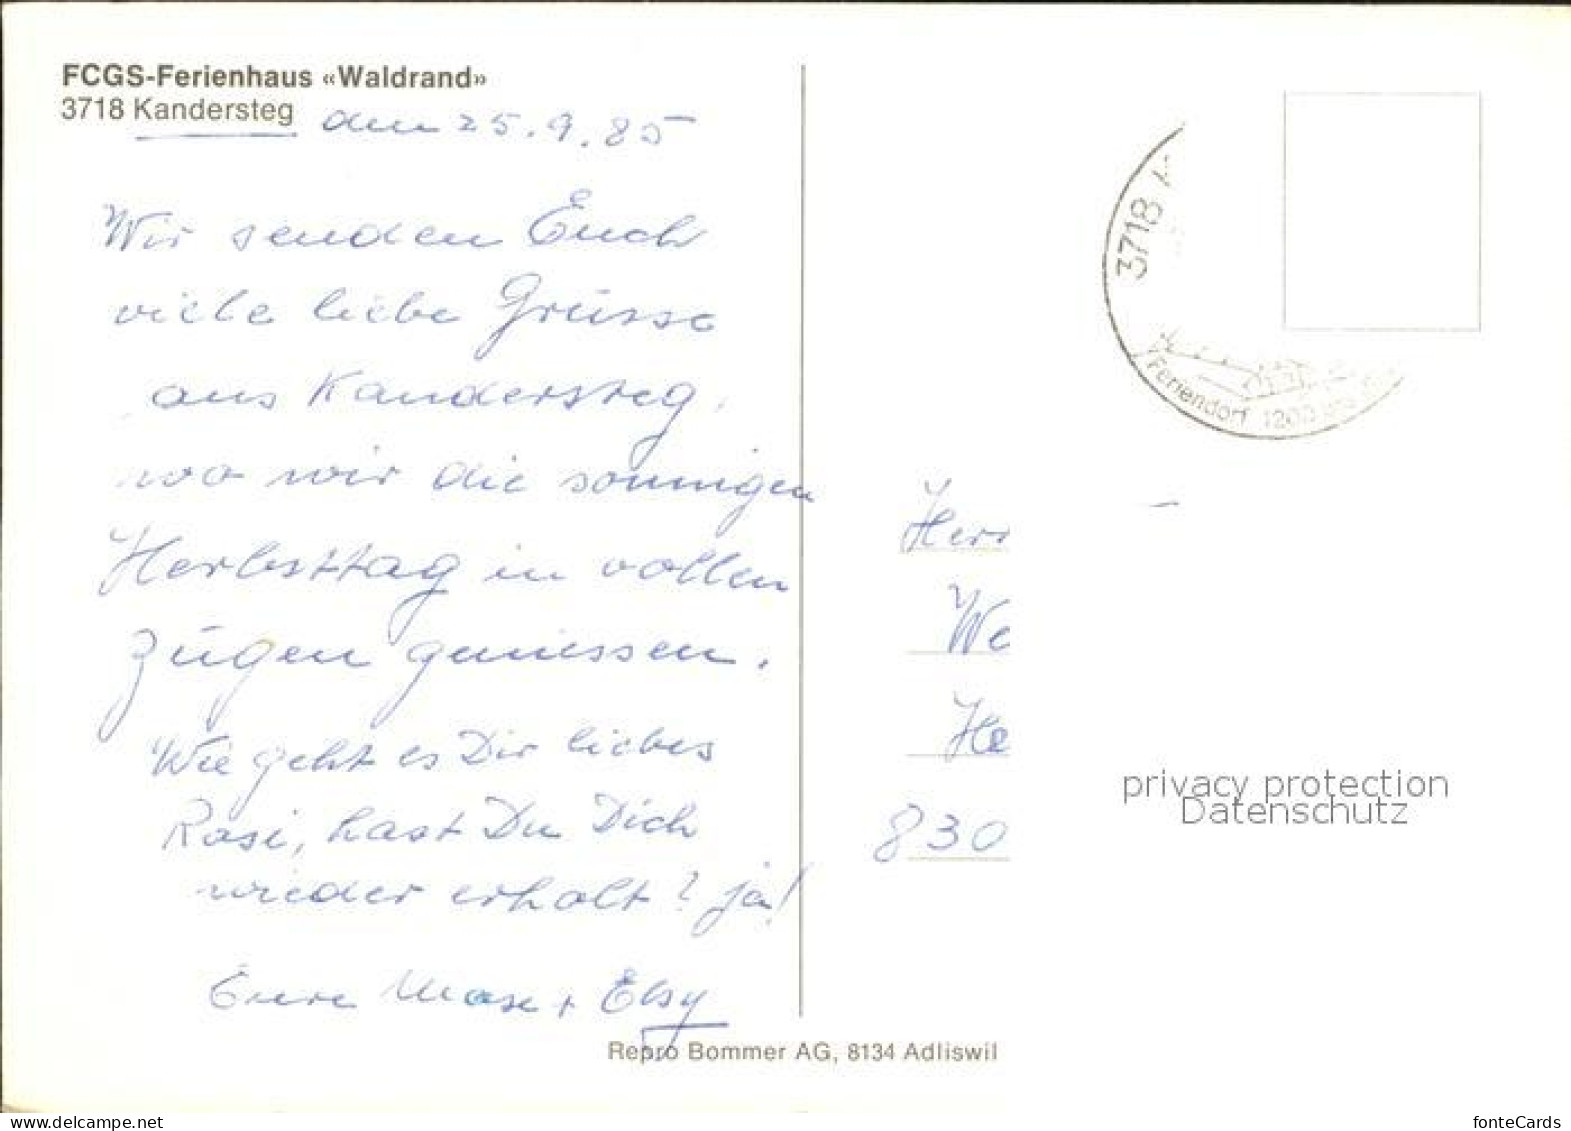 FCGS-Ferienhaus «Waldrand»
3718 Kandersteg den 25.9.85
Wir senden Euch
viele liebe Grüsse
aus Kandersteg,
wo wir die sonnigen
Herbsttag in vollen
Zügen geniessen.
Wie geht es Dir liebes
Rosi, hast Du Dich
wieder erholt? ja!
Eure Max + Elsy
Repro Bommer AG, 8134 Adliswil
3718
Feriendorf 1200
Herr
We
He
830
privacy protection
Datenschutz
fonteCards